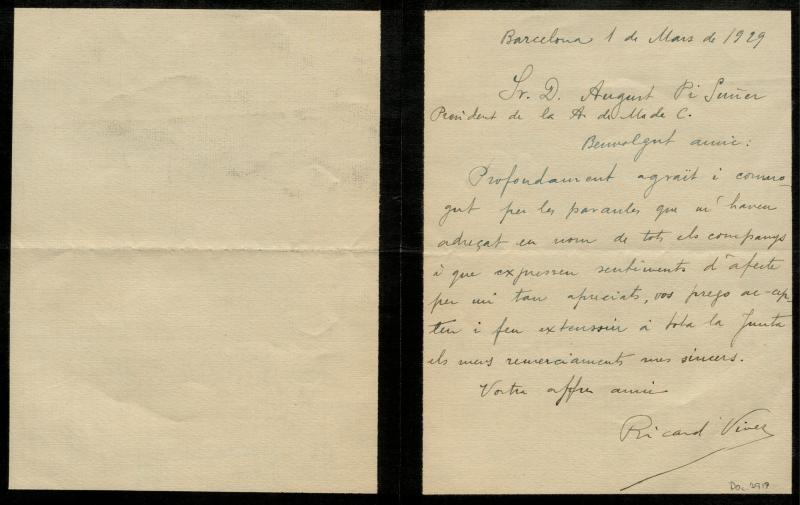 Barcelona 1 de Mars de 1929
Sr. D. August Pi Suñer
President de la A. de M. de C.
Benvolgut amic:
Profondament agraït i comno-
gut per les paraules que m'haveu
adreçat en nom de tots els companys
i que expressen sentiments d'afecte
per mi tan apreciats, vos prego ac-cep-
teu i feu extenssiu à tota la Junta
els meus remerciaments mes sincers.
Vostre affm amic
Ricard Vives
Doc 2919